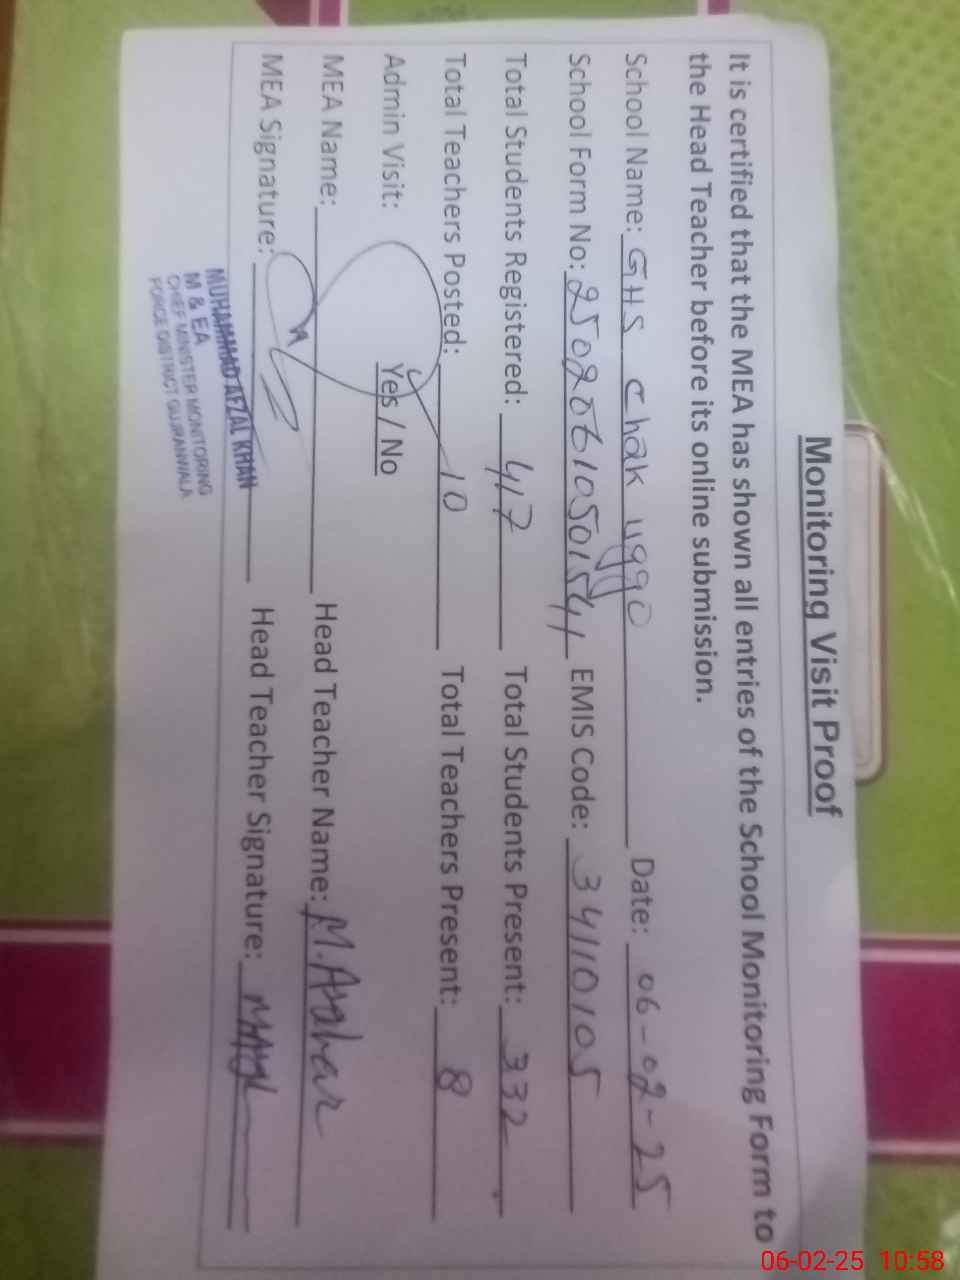 Monitoring Visit Proof
It is certified that the MEA has shown all entries of the School Monitoring Form to
the Head Teacher before its online submission.
School Name: GHS Chak uggo Date: 06-02-25
School Form No: 25020610501541 EMIS Code: 34110105
Total Students Registered: 417 Total Students Present: 332
Total Teachers Posted: 10 Total Teachers Present: 8
Admin Visit: Yes / No
MEA Name: Head Teacher Name: M.
MEA Signature: Head Teacher Signature:
MUHAMMAD AFZAL KHAN
M & EA
CHIEF MINISTER MONITORING
FORCE DISTRICT GUJRANWALA
06-02-25 10:58